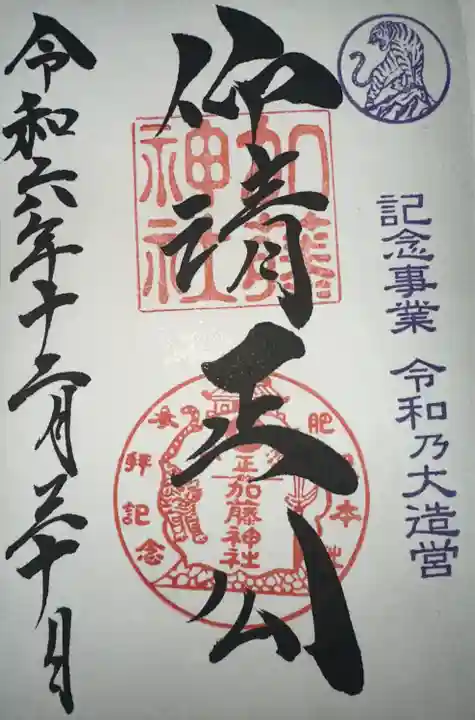 記念事業 令和乃大造営
仰清正公
加藤
神社
加藤神社
参拝記念
令和六年十二月三十日